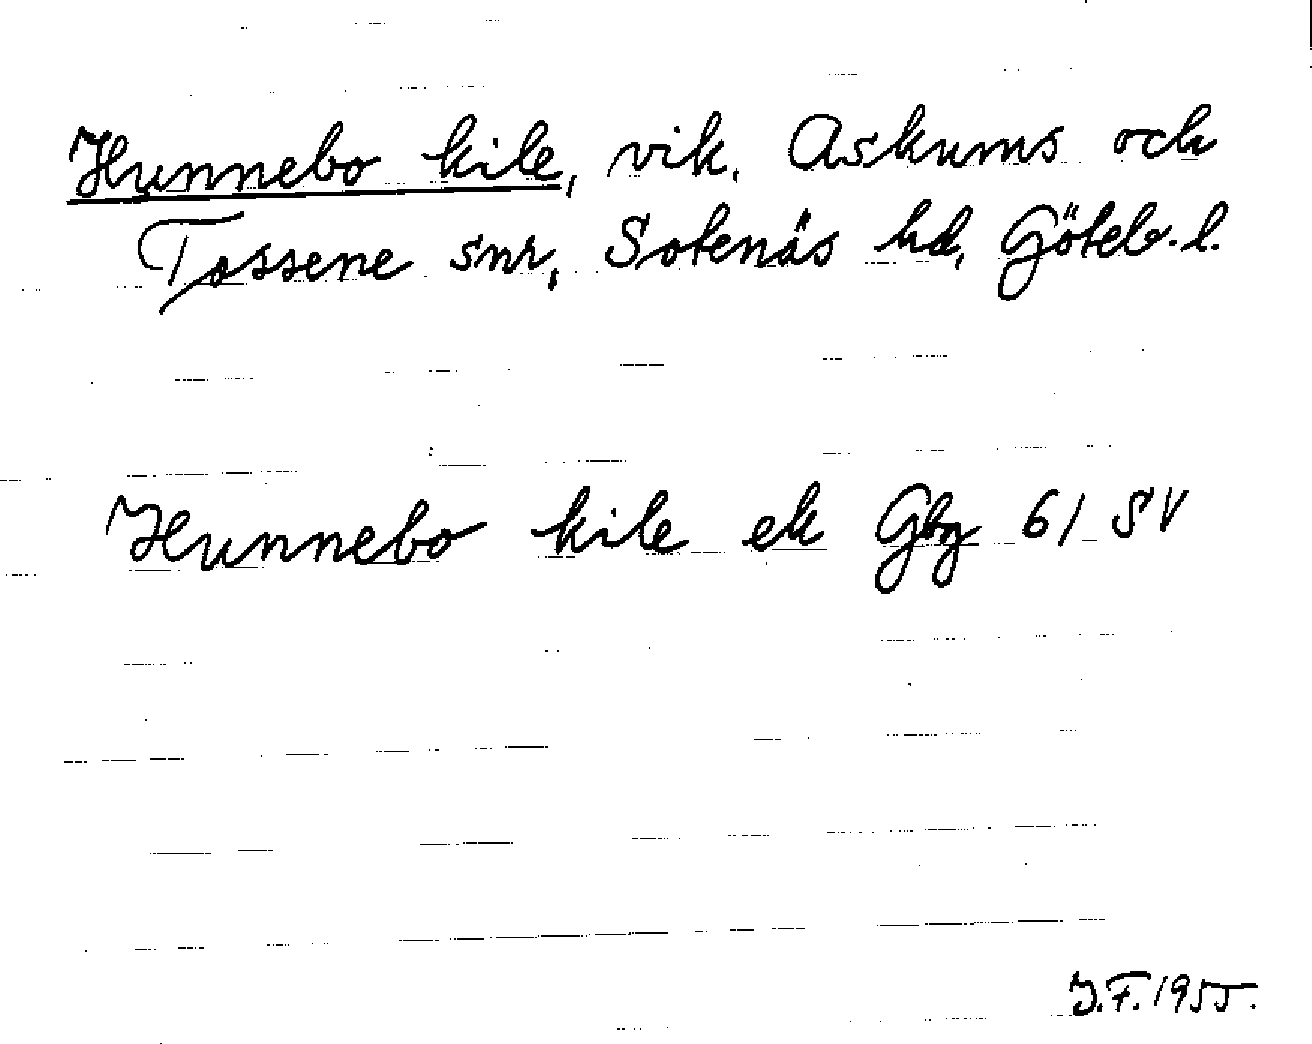 Hunnebo kile, vik, Askums och
Tossene snr, Sotenäs hd, Göteb. l.
Hunnebo kile ek Gbg 61 SV
J.F. 1955.